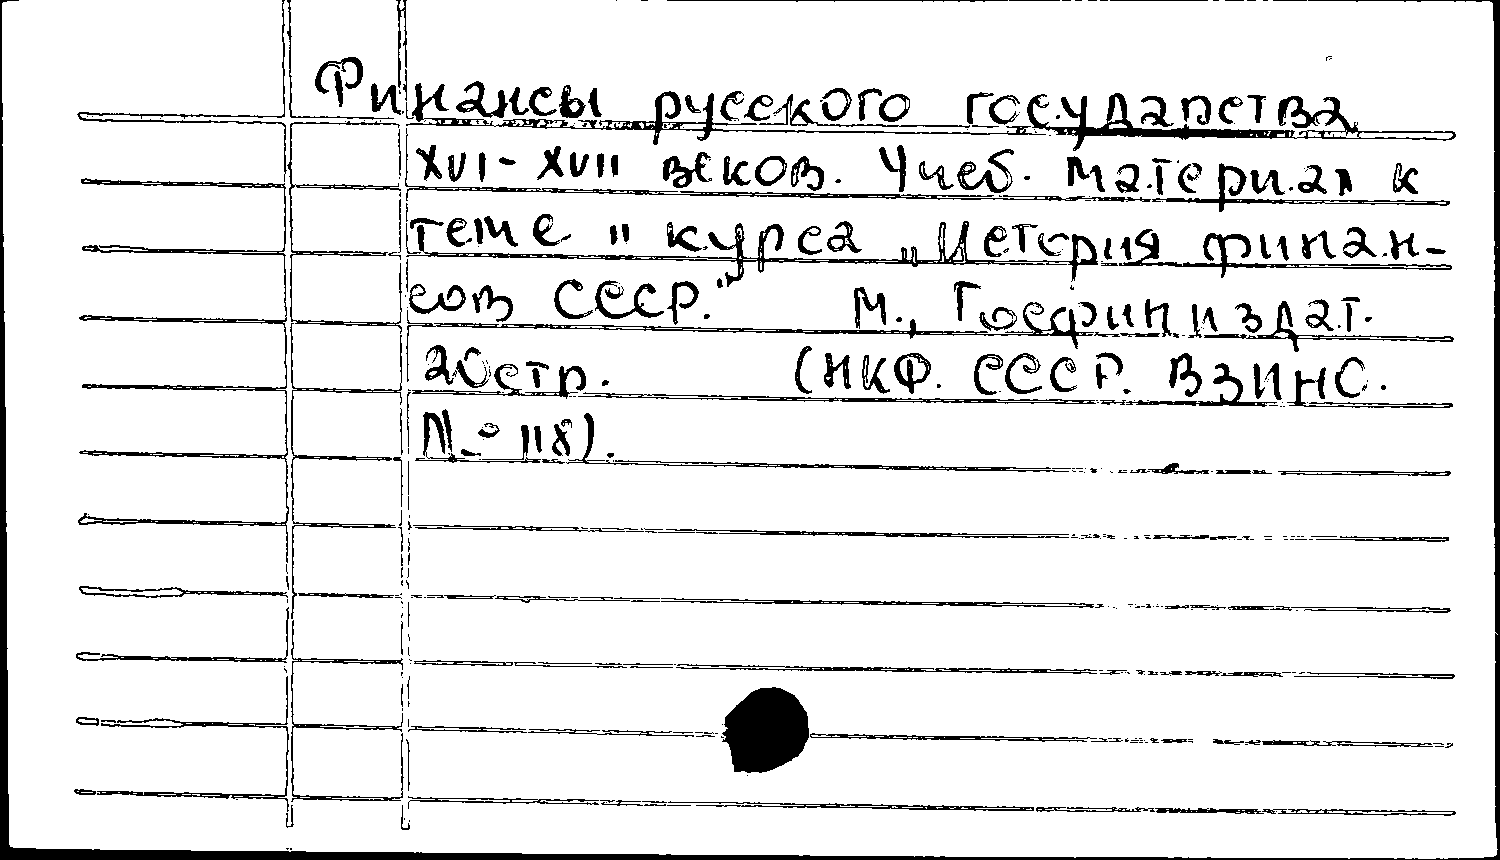 Финансы русского государства
XVI-XVII веков. Учеб. материал к
теме II курса „История финан-
сов СССР.” М., Госфиниздат.
20стр. (НКФ. СССР. ВЗИНО.
№ 118).